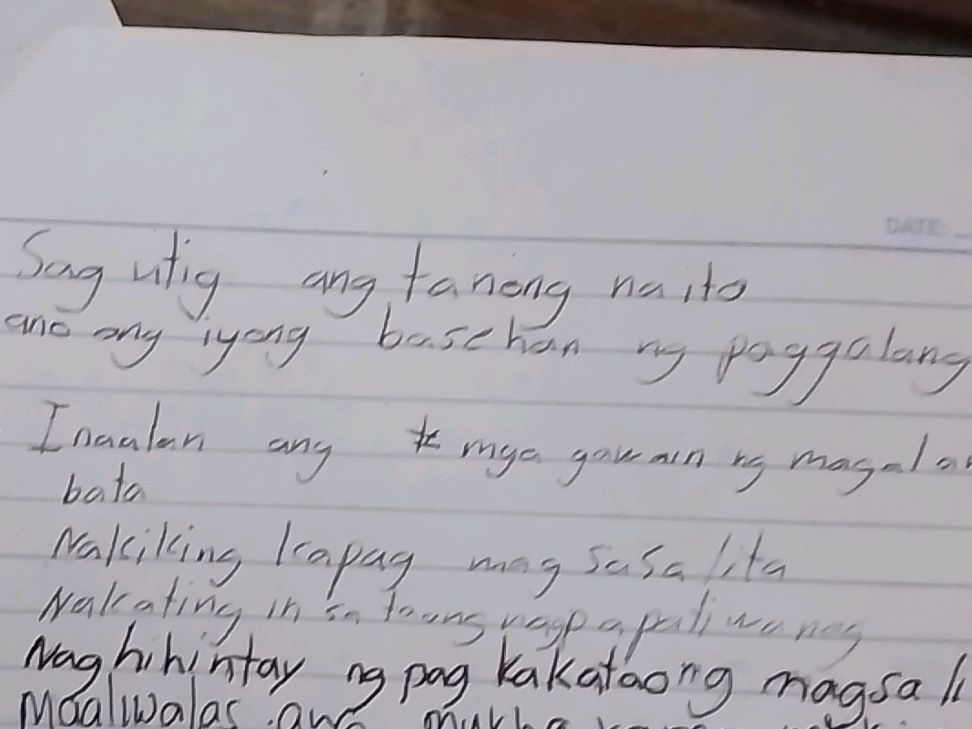 DATE:
Sag utig ang tanong na ito
ano ang iyong basehan ng paggalang
Inaalan ang mga gawain ng magalan
bata
Nakiking kapag mag sasalita
Nakating in sa taong nagpapaliwanag
Naghihintay ng pag kakataong magsali
Maaliwalas ang mukha